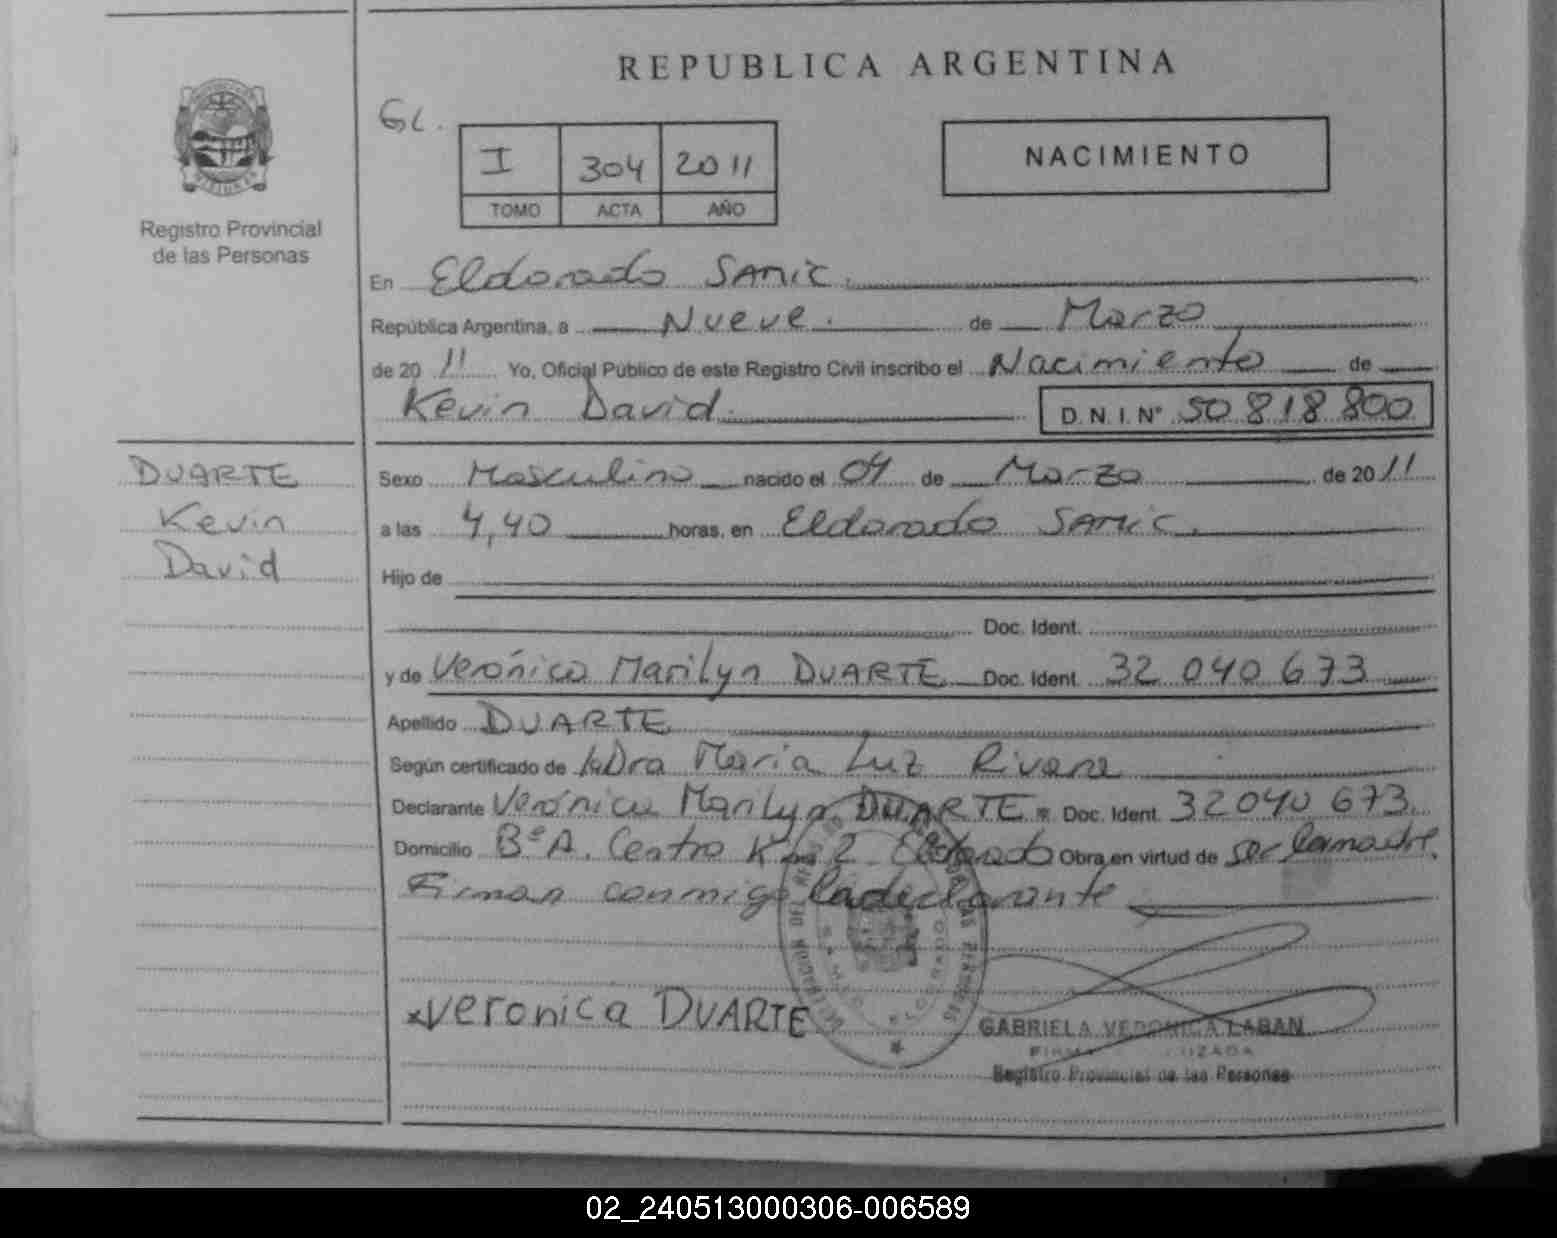 REPUBLICA ARGENTINA
GL.
I 304 2011
TOMO ACTA AÑO
NACIMIENTO
MISIONES
Registro Provincial
de las Personas
En Eldorado SAMIC.
República Argentina, a Nueve. de Marzo
de 20 11 Yo, Oficial Público de este Registro Civil inscribo el Nacimiento de
Kevin David. D.N.I.Nº 50 818 800
DUARTE
Kevin
David
Sexo Masculino nacido el 04 de Marzo de 20 11
a las 4,40 horas, en Eldorado SAMIC.
Hijo de
Doc. Ident.
y de Verónica Marilyn DUARTE Doc. Ident. 32 040 673
Apellido DUARTE
Según certificado de la Dra Maria Luz Rivera
Declarante Verónica Marilyn DUARTE Doc. Ident. 32 040 673
Domicilio Bº A. Centro Km 2 Eldorado Obra en virtud de ser la madre.
Firman conmigo la declarante
x veronica DUARTE
GABRIELA VERONICA LABAN
FIRMA
Registro Provincial de las Personas
02_240513000306-006589